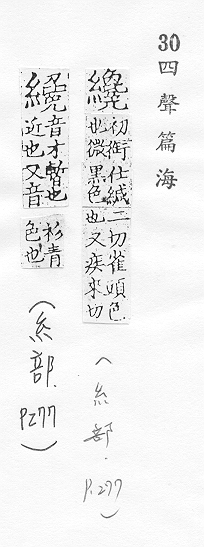 30 四聲篇海
初衘仕緘二切雀頭色
也微黑色也又疾來切
(糸部. P.277)
音才暫也衫青
近也又音色也
(糸部. P277)